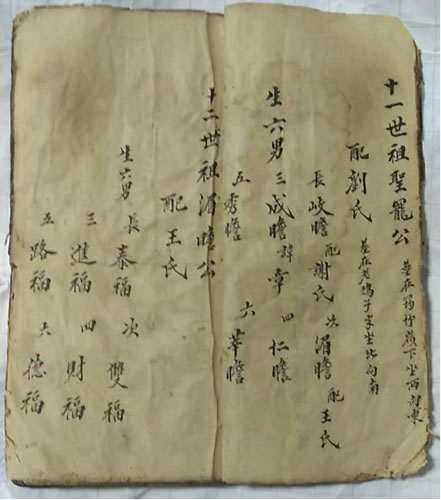 十一世祖聖寵公 墓在筠竹嶺下坐西向東
配劉氏 墓在老鴉子宗坐北向南
長岐瞻 配謝氏 次湄瞻 配王氏
生六男 三成瞻 辞章 四仁瞻
五秀瞻 六華瞻
十二世祖湄瞻公
配王氏
生六男 長泰福 次雙福
三進福 四财福
五路福 六德福